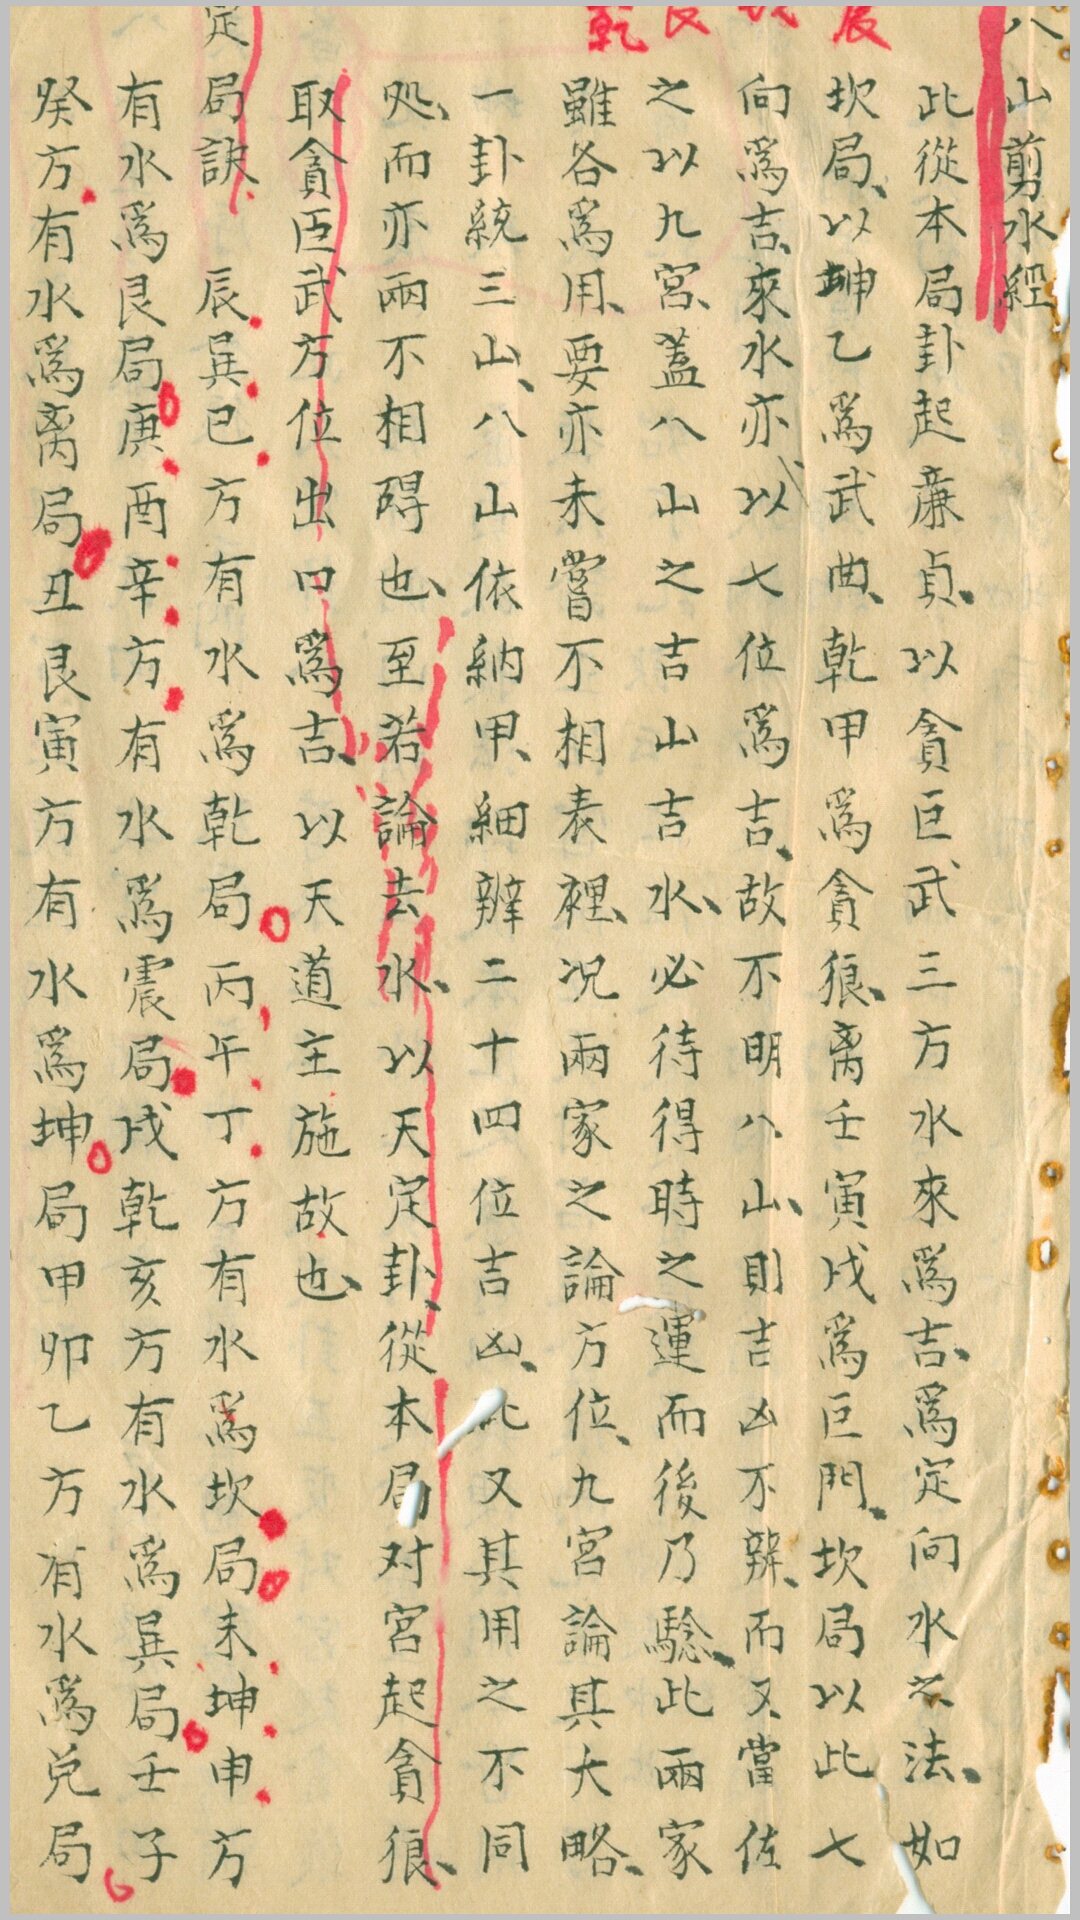 八山剪水經
此從本局卦起廉貞、以貪巨武三方水來爲吉、爲定向水之法、如
坎局、以坤乙爲武曲、乾甲爲貪狼、离壬寅戌爲巨門、坎局以此七
向爲吉、來水亦以七位爲吉、故不明八山、則吉凶不辨、而又當佐
之以九宮、蓋八山之吉山吉水、必待得時之運而後乃驗、此兩家
雖各爲用、要亦未嘗不相表裡、况兩家之論方位、九宮論其大略、
一卦統三山、八山依納甲、細辨二十四位吉凶、此又其用之不同
処、而亦兩不相碍也、至若論去水、以天定卦、從本局对宮起貪狼、
取貪臣武方位出口爲吉、以天道主施故也、
定局訣 辰巽巳方有水爲乾局丙午丁方有水爲坎局未坤申方
有水爲艮局庚酉辛方有水爲震局戌乾亥方有水爲巽局壬子
癸方有水爲离局丑艮寅方有水爲坤局甲卯乙方有水爲兌局
震
艮
乾